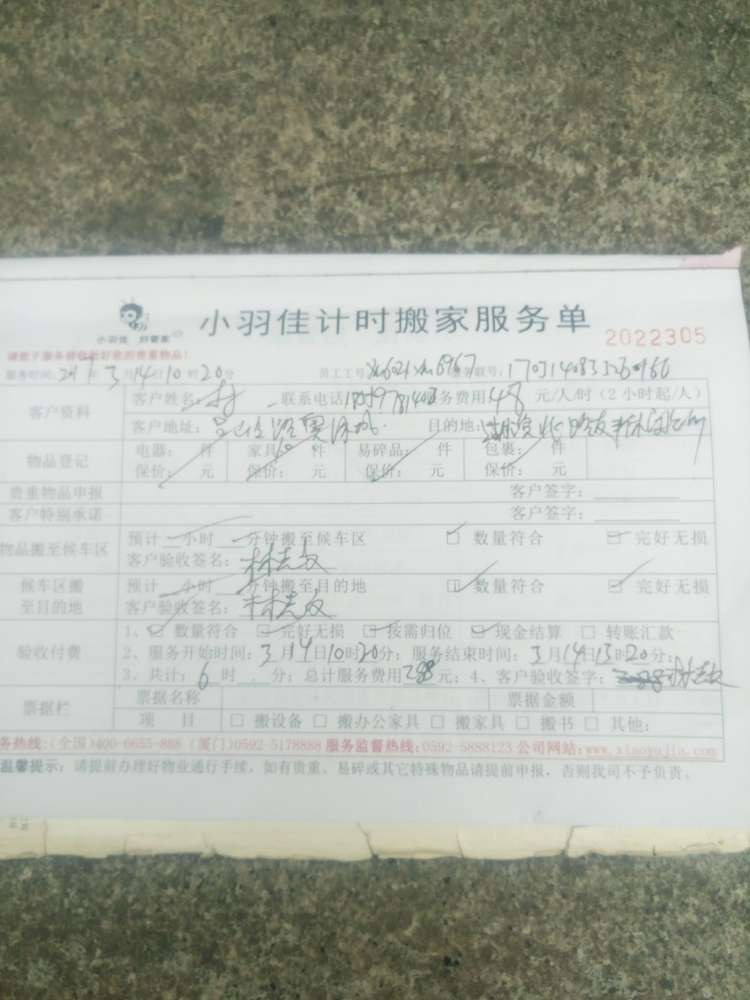 小羽佳 好管家
小羽佳计时搬家服务单
2022305
请您于服务前收拾好您的贵重物品!
服务时间: 21年3月14日10时20分 员工工号
客户资料
客户姓名: 林 联系电话 服务费用48元/人/时(2小时起/人)
客户地址: 目的地:
物品登记
电器: 件 家具: 件 易碎品: 件 包裹: 件
保价: 元 保价: 元 保价: 元 保价: 元
贵重物品申报 客户签字:
客户特别承诺 客户签字:
物品搬至候车区
预计 小时 分钟搬至候车区 □ 数量符合 ☑ 完好无损
客户验收签名:
候车区搬至目的地
预计 小时 分钟搬至目的地 ☑ 数量符合 ☑ 完好无损
客户验收签名:
验收付费
1、☑ 数量符合 ☑ 完好无损 ☑ 按需归位 ☑ 现金结算 □ 转账汇款
2、服务开始时间: 3月14日10时20分; 服务结束时间: 3月14日13时20分;
3、共计: 6时 分; 总计服务费用288元; 4、客户验收签字:
票据栏
票据名称 票据金额
项 目 □ 搬设备 □ 搬办公家具 □ 搬家具 □ 搬书 □ 其他:
务热线:(全国)400-6655-888 (厦门)0592-5178888 服务监督热线:0592-5888123 公司网站:www.xiaoyujia.com
温馨提示: 请提前办理好物业通行手续, 如有贵重、易碎或其它特殊物品请提前申报, 否则我司不予负责。